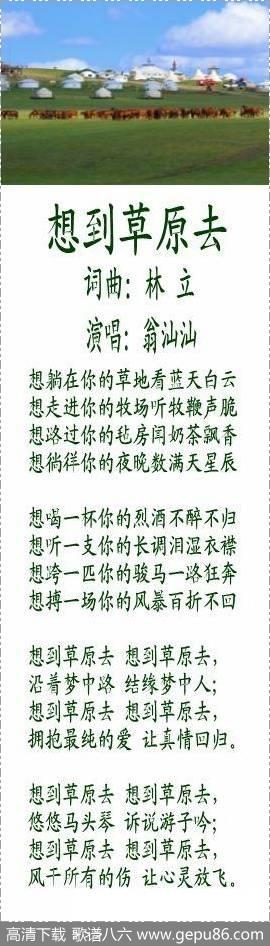 想到草原去
词曲：林 立
演唱：翁汕汕
想躺在你的草地看蓝天白云
想走进你的牧场听牧鞭声脆
想路过你的毡房闻奶茶飘香
想徜徉你的夜晚数满天星辰
想喝一杯你的烈酒不醉不归
想听一支你的长调泪湿衣襟
想跨一匹你的骏马一路狂奔
想搏一场你的风暴百折不回
想到草原去 想到草原去，
沿着梦中路 结缘梦中人；
想到草原去 想到草原去，
拥抱最纯的爱 让真情回归。
想到草原去 想到草原去，
悠悠马头琴 诉说游子吟；
想到草原去 想到草原去，
风干所有的伤 让心灵放飞。
高清下载 歌谱八六 www.gepu86.com